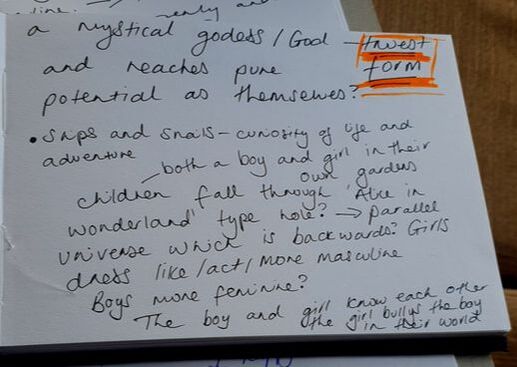 a mystical godess / God – truest
and reaches pure form
potential as themselves?
• Snips and snails – curiosity of life and
adventure
– both a boy and girl in their
own gardens
children fall through 'Alice in
wonderland' type hole? → parallel
universe which is backwards? Girls
dress like / act / more masculine
Boys more feminine?
The boy and girl know each other
the girl bullys the boy
in their world